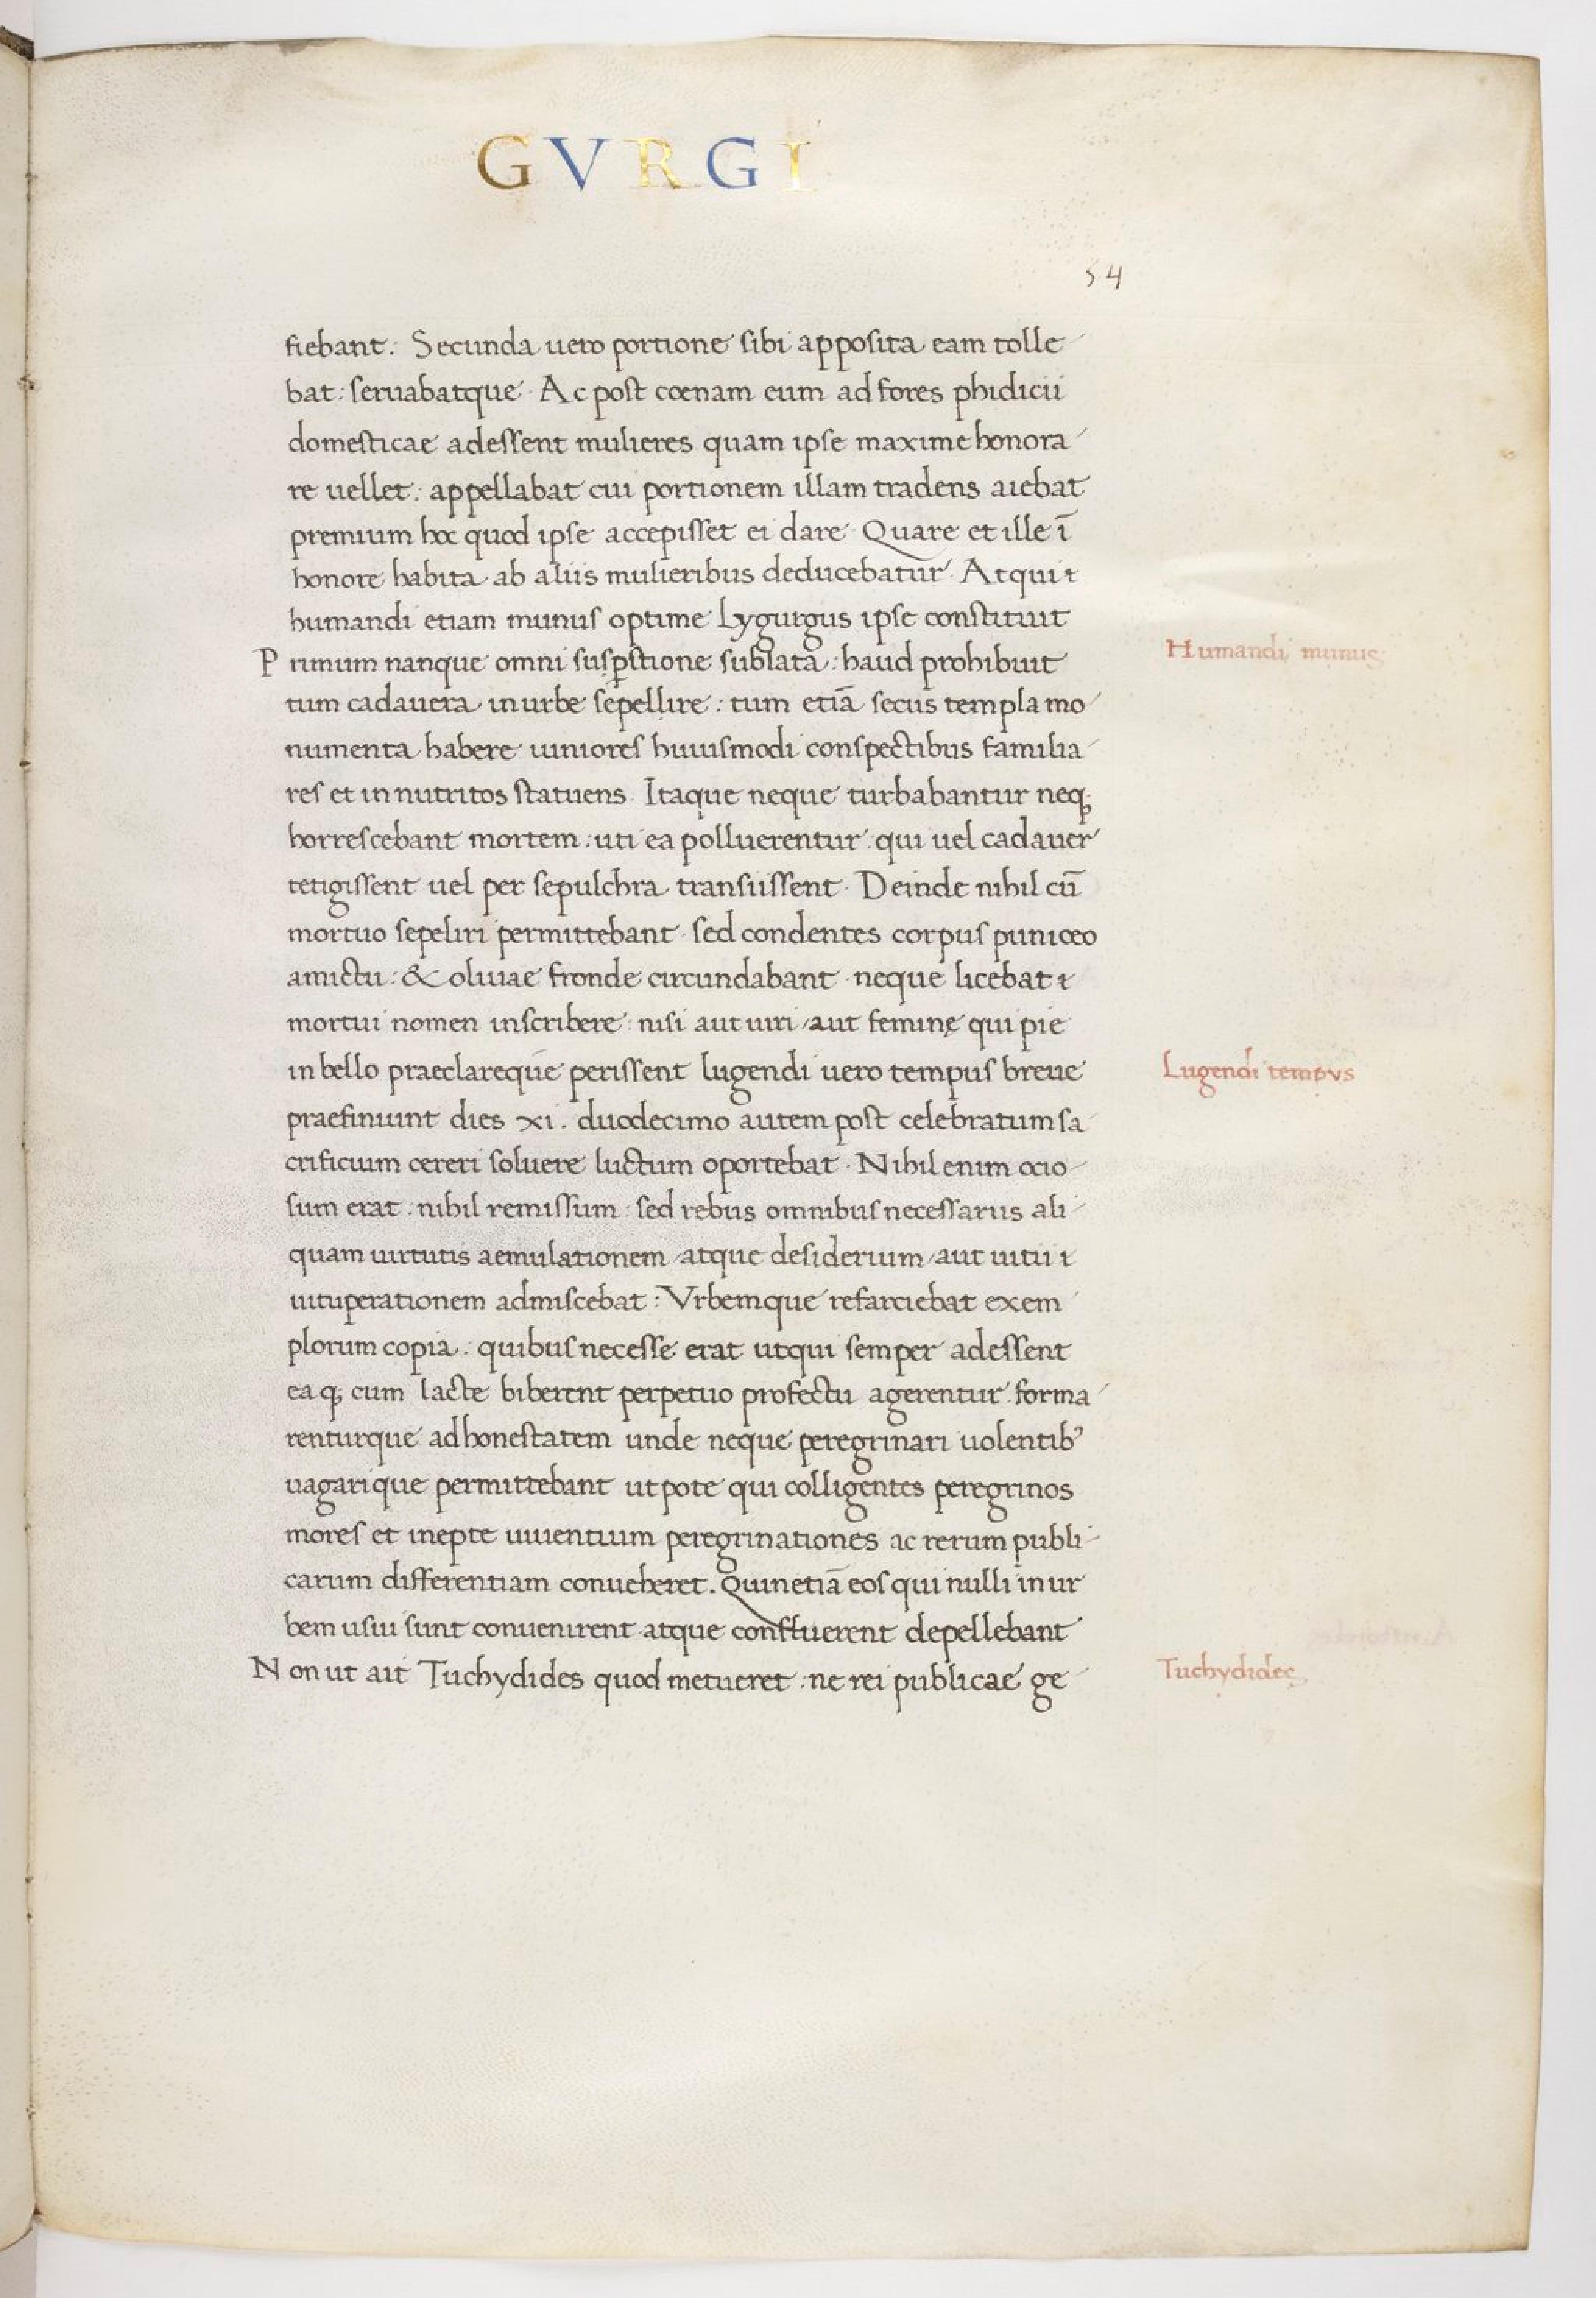 GVRGI
54
fiebant: Secunda uero portione sibi apposita eam tolle
bat: seruabatque· Ac post coenam eum ad fores phidicii
domesticae adessent mulieres quam ipse maxime honora
re uellet: appellabat cui portionem illam tradens aiebat
premium hoc quod ipse accepisset ei dare· Quare et ille ī
honore habita ab aliis mulieribus deducebatur· Atqui
humandi etiam munus optime Lygurgus ipse constituit
Humandi munus
Primum nanque omni suspstione sublata: haud prohibuit
tum cadauera in urbe sepellire: tum etiā secus templa mo
numenta habere iuniores huiusmodi conspectibus familia
res et innutritos statuens· Itaque neque turbabantur neq;
horrescebant mortem: uti ea polluerentur· qui uel cadauer
tetigissent uel per sepulchra transiissent· Deinde nihil cū
mortuo sepeliri permittebant· sed condentes corpus puniceo
amictu: & oliuiae fronde circundabant· neque licebat
mortui nomen inscribere: nisi aut uiri/aut feminę qui pie
in bello praeclareque perissent lugendi uero tempus breue
Lugendi tempus
praefiniunt dies xi. duodecimo autem post celebratum sa
crificium cereri soluere luctum oportebat· Nihil enim ocio
sum erat: nihil remissum: sed rebus omnibus necessariis ali
quam uirtutis aemulationem/atque desiderium/aut uitii
uituperationem admiscebat: Vrbemque refarciebat exem
plorum copia: quibus necesse erat utqui semper adessent
eaq; cum lacte biberent perpetuo profectu agerentur· forma
renturque ad honestatem unde neque peregrinari uolentib9
uagarique permittebant utpote qui colligentes peregrinos
mores et inepte uiuentium peregrinationes ac rerum publi
carum differentiam conueheret. Quinetiā eos qui nulli in ur
bem usui sunt conuenirent atque confluerent depellebant
Non ut ait Tuchydides quod metueret: ne rei publicae ge
Tuchydides